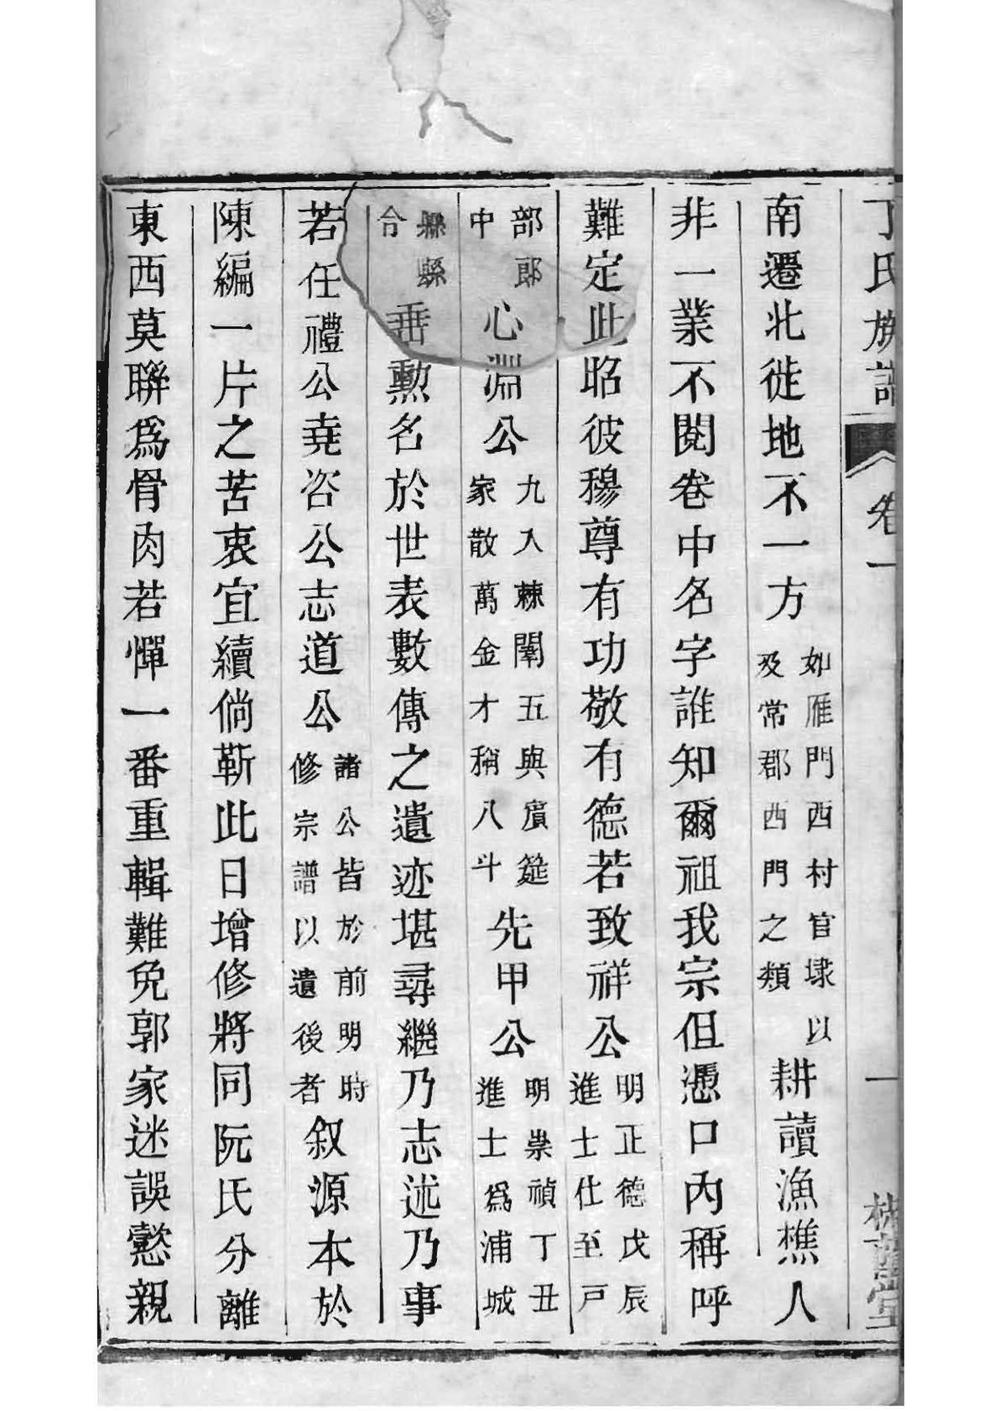 丁氏族譜 卷一 一 萱堂
南遷北徙地不一方如雁門西村官埭以及常郡西門之類耕讀漁樵人
非一業不閱卷中名字誰知爾祖我宗但憑口內稱呼
難定此昭彼穆尊有功敬有德若致祥公明正德戊辰進士仕至戶
部郎中心淵公九入棘闈五與賓筵家散萬金才稱八斗先甲公明崇禎丁丑進士爲浦城
縣令垂勲名於世表數傳之遺迹堪尋繼乃志述乃事
若任禮公堯咨公志道公諸公皆於前明時修宗譜以遺後者叙源本於
陳編一片之苦衷宜續倘靳此日增修將同阮氏分離
東西莫聯爲骨肉若憚一番重輯難免郭家迷誤愨親